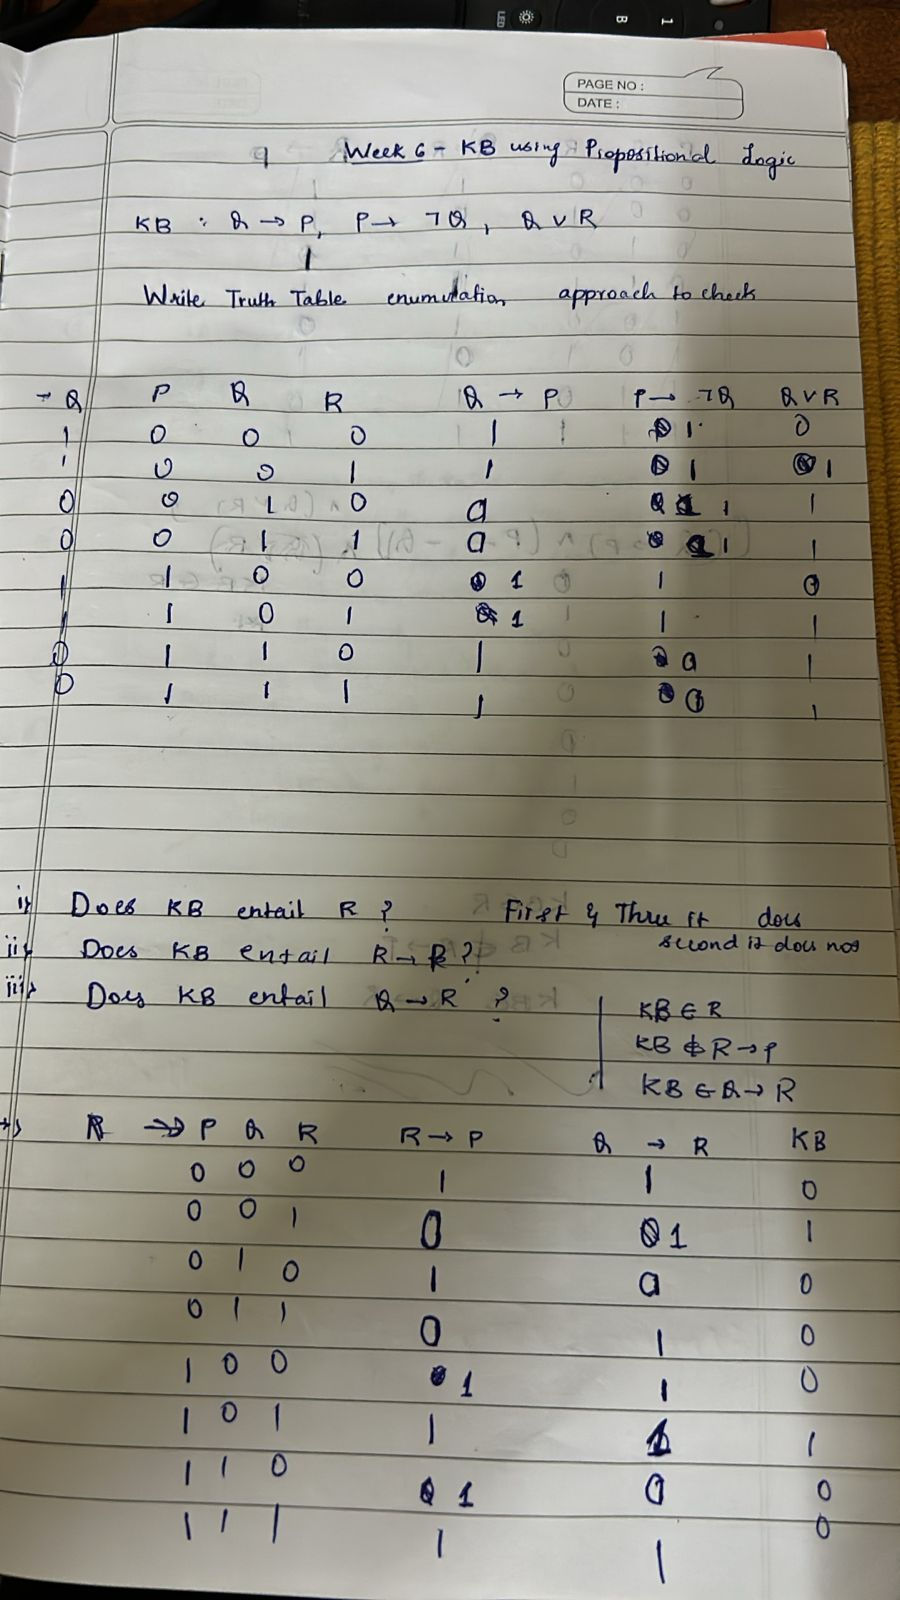 LED B 1
PAGE NO :
DATE :
Week 6 - KB using Propositional Logic
KB : Q → P, P → ¬Q, Q ∨ R
Write Truth Table enumulation approach to check
¬Q P Q R Q → P P → ¬Q Q ∨ R
1 0 0 0 1 1 0
1 0 0 1 1 1 1
0 0 1 0 0 1 1
0 0 1 1 0 1 1
1 1 0 0 1 1 0
1 1 0 1 1 1 1
0 1 1 0 1 0 1
0 1 1 1 1 0 1
i) Does KB entail R ? First & Three it does
second it does not
ii) Does KB entail R → P ?
iii) Does KB entail Q → R ?
KB ∈ R
KB ∉ R → P
KB ∈ Q → R
P Q R R → P Q → R KB
0 0 0 1 1 0
0 0 1 0 1 1
0 1 0 1 0 0
0 1 1 0 1 0
1 0 0 1 1 0
1 0 1 1 1 1
1 1 0 1 0 0
1 1 1 1 1 0